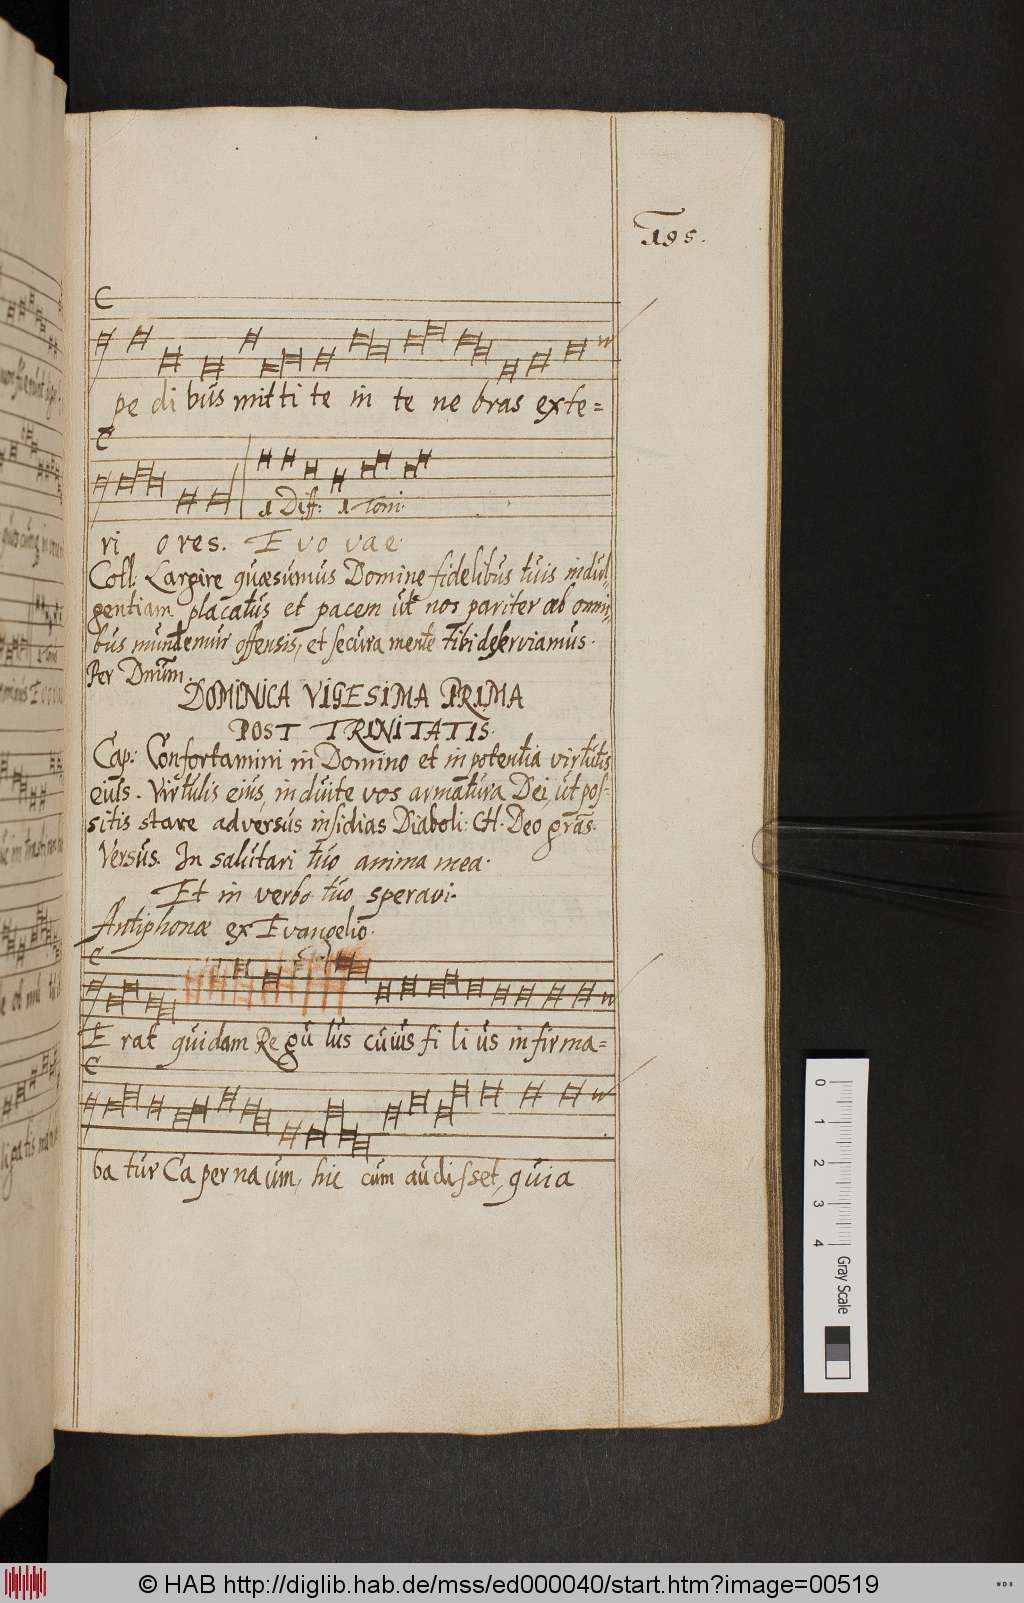 195.
C
pe di bus mit ti te in te ne bras exte=
C
1 Diff: 1 Toni.
ri o res. E vo vae
Coll: Largire quæsumus Domine fidelibus tuis indul,
gentiam placatus et pacem ut nos pariter ab omni,
bus mundemur offensis, et secura mente tibi deserviamus.
Per Dnum.
DOMINICA VIGESIMA PRIMA
POST TRINITATIS.
Cap: Confortamini in Domino et in potentia virtutis
eius. Virtutis eius, induite vos armatura Dei, ut pos=
sitis stare adversus insidias Diaboli: Deo gras.
Versus. In salutari tuo anima mea.
Et in verbo tuo speravi.
Antiphonæ ex Evangelio.
C
E rat quidam Re gu lus cuius fi li us in firma=
C
ba tur Ca per na um, hic cum audisset, quia
0 1 2 3 4 Gray Scale
© HAB http://diglib.hab.de/mss/ed000040/start.htm?image=00519